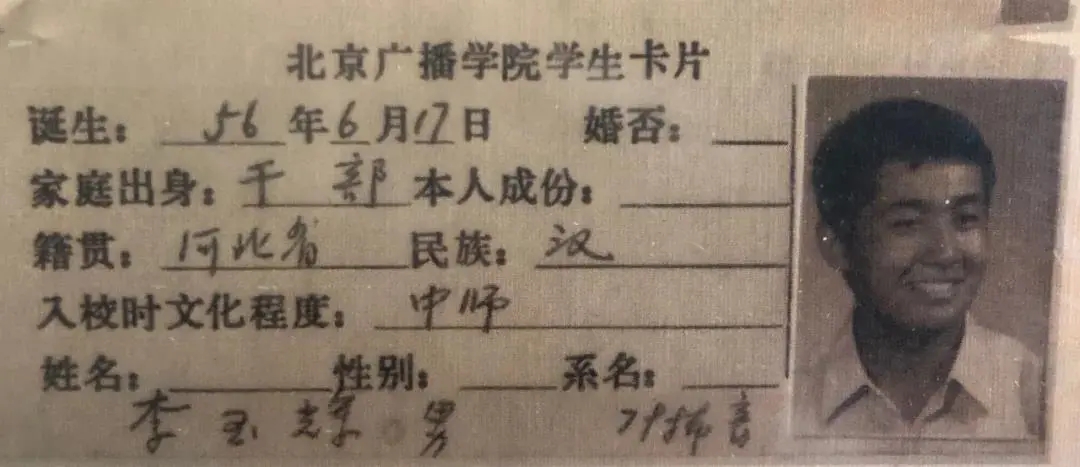 北京广播学院学生卡片
诞生：56年6月17日 婚否：
家庭出身：干部 本人成份：
籍贯：河北省 民族：汉
入校时文化程度：中师
姓名： 性别： 系名：
李玉 男 播音